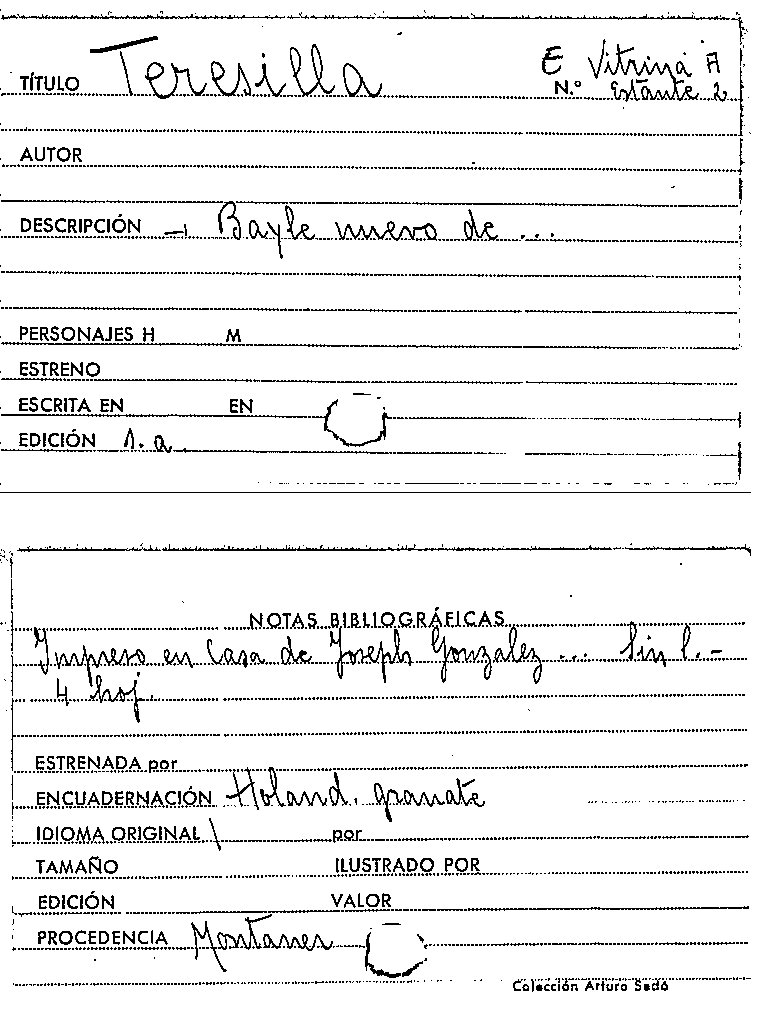 TÍTULO Teresilla E Vitrina A
N.º Estante 2
AUTOR
DESCRIPCIÓN → Bayle nuevo de ...
PERSONAJES H M
ESTRENO
ESCRITA EN EN
EDICIÓN 1.a
NOTAS BIBLIOGRÁFICAS
Impreso en casa de Joseph Gonzalez ... Sin l.-
4 hoj.
ESTRENADA por
ENCUADERNACIÓN Holand. granate
IDIOMA ORIGINAL \ por
TAMAÑO ILUSTRADO POR
EDICIÓN VALOR
PROCEDENCIA Montaner
Colección Arturo Sedó